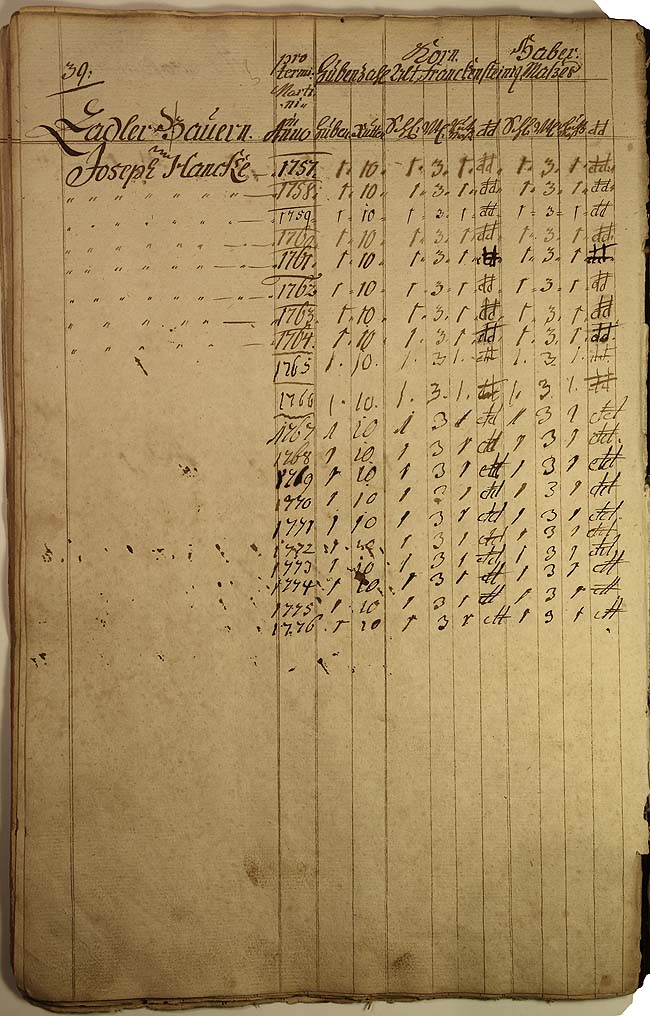 39.
pro Korn. Haber.
termi. Alt Franckensteiny Maſses
Marti
ni
Zadler Bauern. Anno Huben Rutten dd dd
Joseph Hancke 1757. 1. 10. 1. 3. 1. dd 1. 3. 1. dd.
" " " " " " " — 1758. 1. 10. 1. 3. 1. dd 1. 3. 1. dd
" " " " " " " — 1759. 1. 10. 1. 3. 1. dd 1. 3. 1. dd
" " " " " " " — 1. 10. 1. 3. 1. dd 1. 3. 1. dd
" " " " " " " — 1761. 1. 10. 1. 3. 1. dd 1. 3. 1. dd
" " " " " " " — 1762. 1. 10. 1. 3. 1. dd 1. 3. 1. dd
" " " " " " " — 1763. 1. 10. 1. 3. 1. dd 1. 3. 1. dd
" " " " " " " — 1764. 1. 10. 1. 3. 1. dd 1. 3. 1. dd
1765 1. 10. 1. 3. 1. dd 1. 3. 1. dd
1766 1. 10. 1. 3. 1. dd 1. 3. 1. dd
1767 1 10 1 3 1 dd 1 3 1 dd
1768 1 10 1 3 1 dd 1 3 1 dd
1769 1 10 1 3 1 dd 1 3 1 dd
1770 1 10 1 3 1 dd 1 3 1 dd
1771 1 10 1 3 1 dd 1 3 1 dd
1772 1 10 1 3 1 dd 1 3 1 dd
1773 1 10 1 3 1 dd 1 3 1 dd
1774 1 10 1 3 1 dd 1 3 1 dd
1775 1 10 1 3 1 dd 1 3 1 dd
1776 1 10 1 3 1 dd 1 3 1 dd